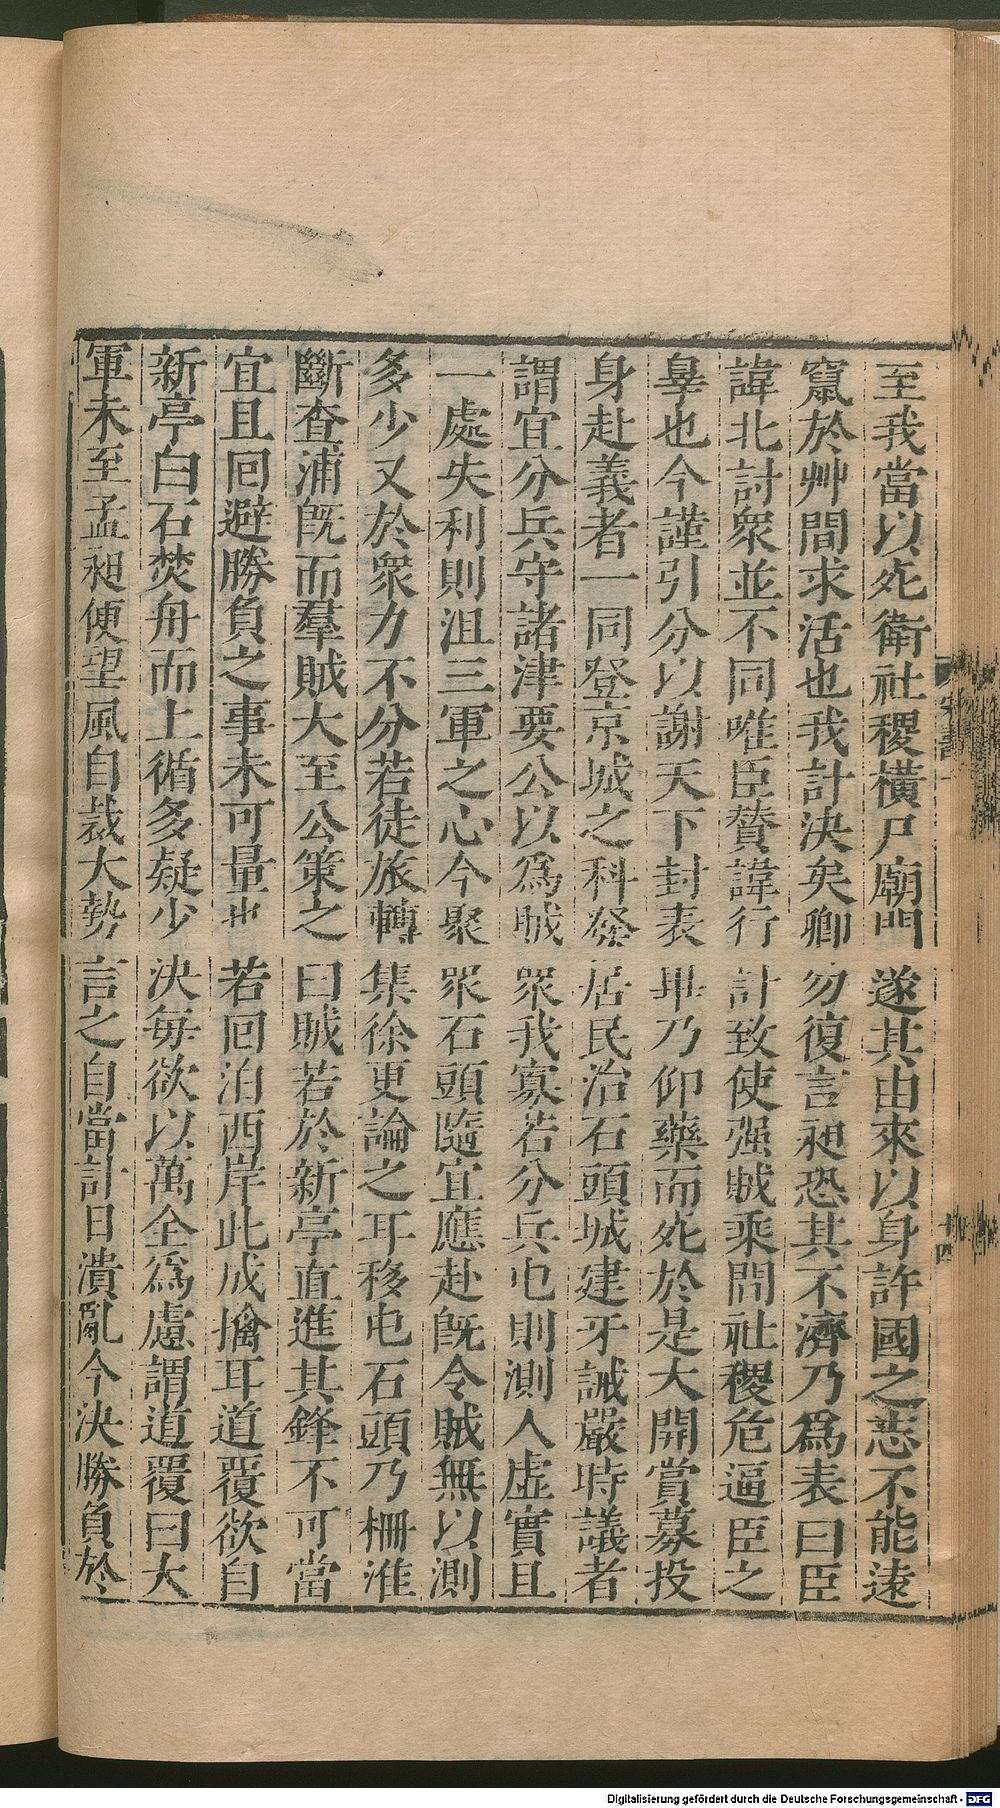 至我當以死衛社稷橫尸廟門遂其由來以身許國之志不能遠
竄於艸間求活也我計決矣卿勿復言昶恐其不濟乃爲表曰臣
諱北討衆並不同唯臣贊諱行計致使强賊乘間社稷危逼臣之
辠也今謹引分以謝天下封表畢乃仰藥而死於是大開賞募投
身赴義者一同登京城之科發居民治石頭城建牙誡嚴時議者
謂宜分兵守諸津要公以爲賊眾我寡若分兵屯則測人虛實且
一處失利則沮三軍之心今聚眾石頭隨宜應赴旣令賊無以測
多少又於衆力不分若徒旅轉集徐更論之耳移屯石頭乃柵淮
斷查浦旣而羣賊大至公策之曰賊若於新亭直進其鋒不可當
宜且回避勝負之事未可量也若回泊西岸此成擒耳道覆欲自
新亭白石焚舟而上循多疑少決每欲以萬全爲慮謂道覆曰大
軍未至孟昶便望風自裁大勢言之自當計日潰亂今決勝負於
十四
Digitalisierung gefördert durch die Deutsche Forschungsgemeinschaft - DFG